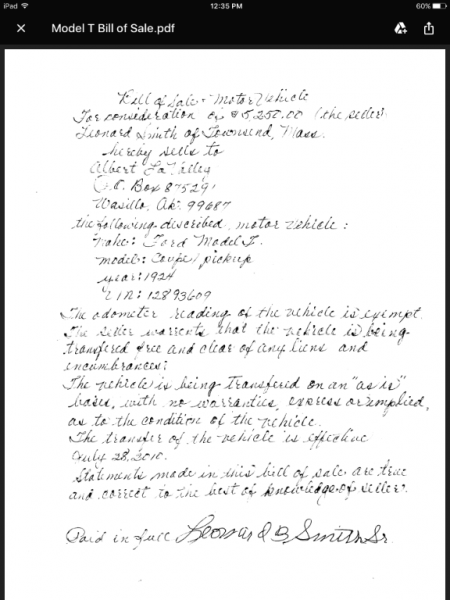 iPad 12:35 PM 60%
Model T Bill of Sale.pdf
Bill of Sale - Motor Vehicle
For consideration of $5,250.00 (the seller)
Leonard Smith of Townsend, Mass.
hereby sells to
Albert LaValley
P.O. Box 875291
Wasilla, Ak. 99687
the following described motor vehicle:
Make: Ford Model T.
model: Coupe/pickup
year: 1924
VIN: 12893609
The odometer reading of the vehicle is exempt.
The seller warrents that the vehicle is being
transfered free and clear of any liens and
incumbrances:
The vehicle is being transfered on an "as is"
basis, with no warranties, express or implied,
as to the condition of the vehicle.
The transfer of the vehicle is effective
July 28, 2010.
Statements made in this bill of sale are true
and correct to the best of knowledge of seller.
Paid in full Leonard B Smith Sr.